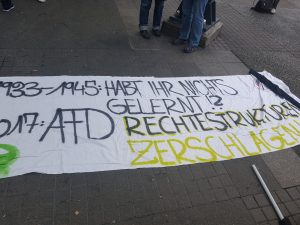 1933-1945: HABT IHR NICHTS
GELERNT?
2017: AFD RECHTESTRUKTUREN
ZERSCHLAGEN